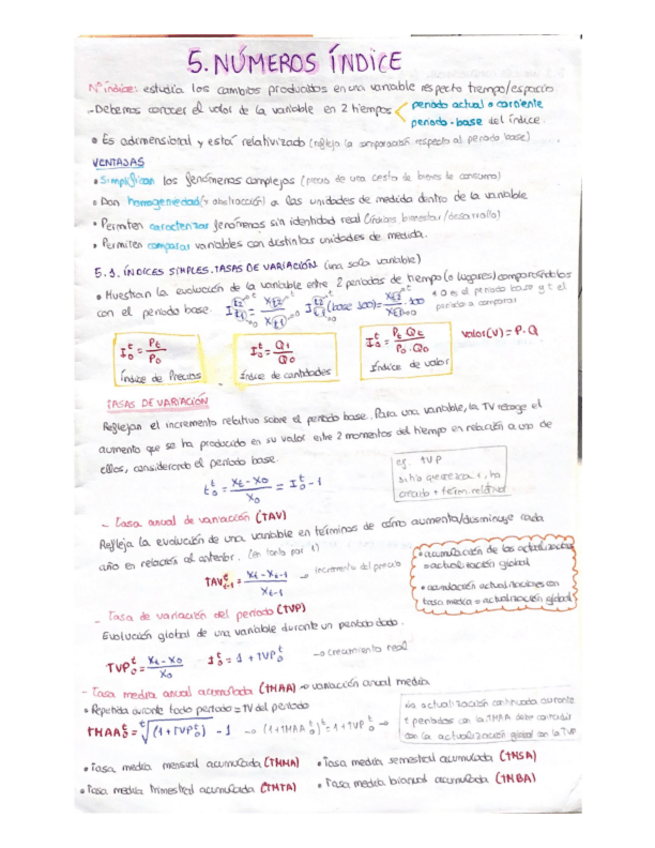 5. NÚMEROS ÍNDICE
Nº índice: estudia los cambios producidos en una variable respecto tiempo/espacio
- Debemos conocer el valor de la variable en 2 tiempos < periodo actual o corriente
periodo-base del índice.
• Es adimensional y está relativizado (refleja la comparación respecto al periodo base)
VENTAJAS
• Simplifican los fenómenos complejos (precio de una cesta de bienes de consumo)
• Dan homogeneidad (y abstracción) a las unidades de medida dentro de la variable
• Permiten caracterizar fenómenos sin identidad real (índices bienestar/desarrollo)
• Permiten comparar variables con distintas unidades de medida.
5.1. ÍNDICES SIMPLES. TASAS DE VARIACIÓN. (una sola variable)
• Muestran la evolución de la variable entre 2 periodos de tiempo (o lugares) comparándolos
con el periodo base.
• 0 es el periodo base y t el periodo a comparar
I₀ᵗ = Pt / P0
Índice de Precios
I₀ᵗ = Qt / Q0
Índice de cantidades
I₀ᵗ = Pt · Qt / P0 · Q0
Índice de valor
Valor(V) = P·Q
TASAS DE VARIACIÓN
Reflejan el incremento relativo sobre el periodo base. Para una variable, la TV recoge el
aumento que se ha producido en su valor entre 2 momentos del tiempo en relación a uno de
ellos, considerando el periodo base.
t₀ᵗ = Xt - X0 / X0 = I₀ᵗ - 1
ej. TVP
- Tasa anual de variación (TAV)
Refleja la evolución de una variable en términos de cómo aumenta/disminuye cada
año en relación al anterior. (en tanto por 1)
TAVᵗt-1 = Xt - Xt-1 / Xt-1 → incremento del precio
• acumulación de las actualizaciones
= actualización global
• acumulación actualizaciones con
tasa media = actualización global
- Tasa de variación del periodo (TVP)
Evolución global de una variable durante un periodo dado.
TVP₀ᵗ = Xt - X0 / X0 I₀ᵗ = 1 + TVP₀ᵗ → crecimiento real
- Tasa media anual acumulada (TMAA) → variación anual media
• Repetida durante todo periodo = TV del periodo
TMAA₀ᵗ = ᵗ√(1+TVP₀ᵗ) - 1 → (1+TMAA₀ᵗ)ᵗ = 1+TVP₀ᵗ →
la actualización continuada durante
t periodos con la TMAA debe coincidir
con la actualización global con la TVP
• Tasa media mensual acumulada (TMMA) • Tasa media semestral acumulada (TMSA)
• Tasa media trimestral acumulada (TMTA) • Tasa media bianual acumulada (TMBA)